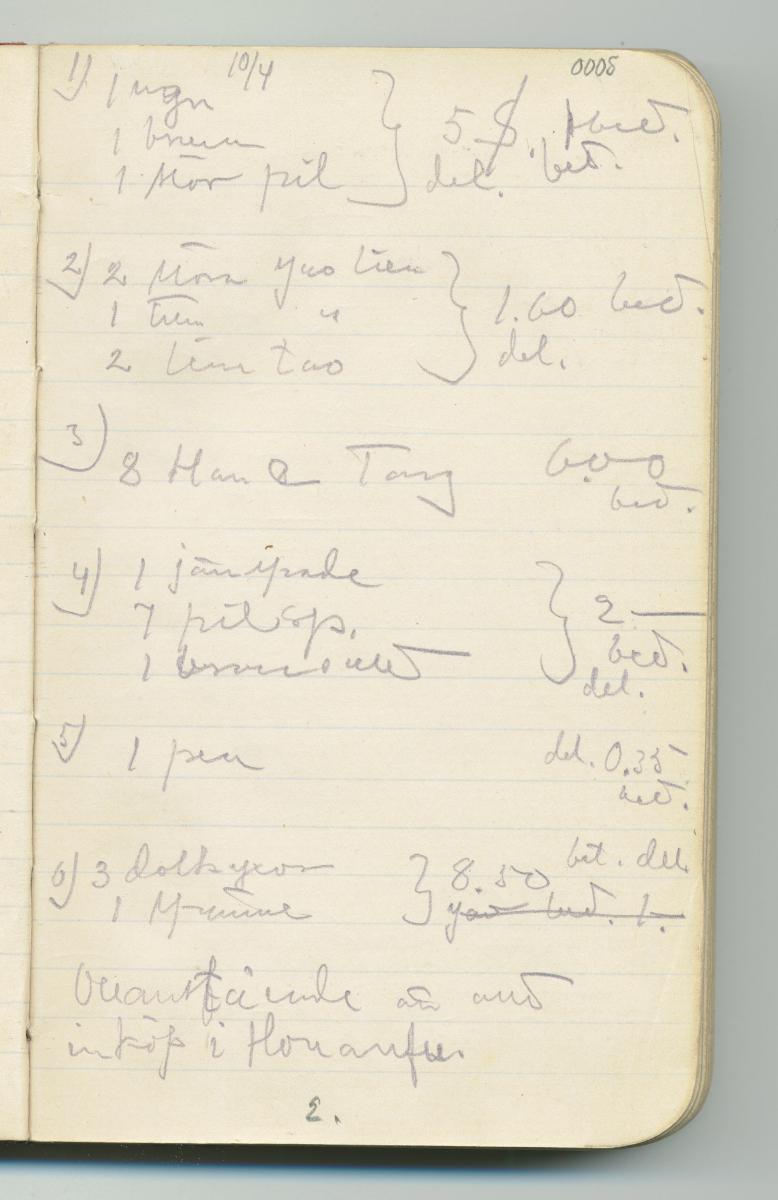 10/4 0005
1) 1 ugn
1 brun
1 stor pil
} 5 $. bet.
del. bet.
2) 2 stora yao tien
1 tien "
2 tien tao
} 1.60 bet.
del.
3)
8 Han & Tang 6.00
bet.
4) 1 järnspade
7 pilsp.
1
} 2 —
bet.
del.
5) 1 pen del. 0.35
bet.
6) 3 dolkyxor
1 spänne
} 8.50 bet. del.
bet. 1.
Ovanstående är allt
inköp i Honanfu.
2.